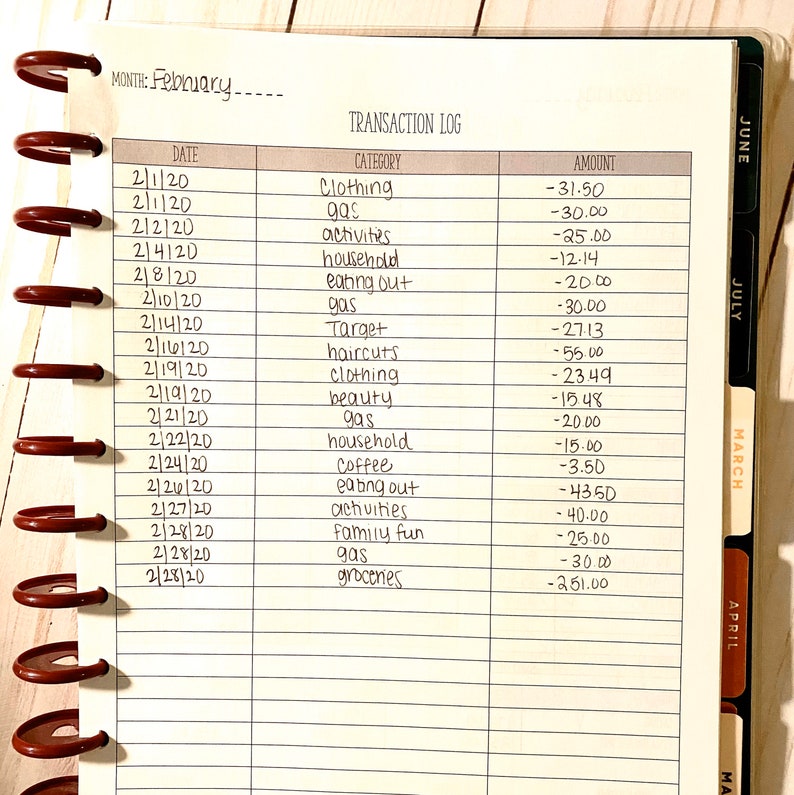 MONTH: February
TRANSACTION LOG
DATE CATEGORY AMOUNT
2/1/20 clothing -31.50
2/1/20 gas -30.00
2/2/20 activities -25.00
2/4/20 household -12.14
2/8/20 eating out -20.00
2/10/20 gas -30.00
2/14/20 Target -27.13
2/16/20 haircuts -55.00
2/19/20 clothing -23.49
2/19/20 beauty -15.48
2/21/20 gas -20.00
2/22/20 household -15.00
2/24/20 coffee -3.50
2/26/20 eating out -43.50
2/27/20 activities -40.00
2/28/20 family fun -25.00
2/28/20 gas -30.00
2/28/20 groceries -251.00
JUNE
JULY
MARCH
APRIL
MA